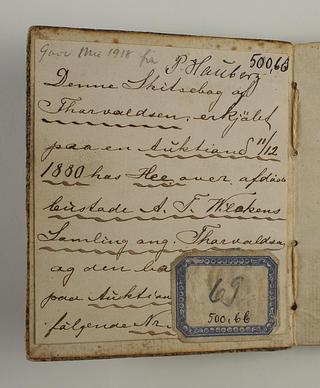 Gave Mus 1918 fra P. Hauberg
500,66
Denne Skitsebog af
Thorvaldsen, er kjøbt
paa en Auktion d 11/12
1880 hos Hee, over afdøde
A. F. Wilckens
Samling ang. Thorvaldsen
og den ba
paa Auktion
følgende Nr.
69
500,66